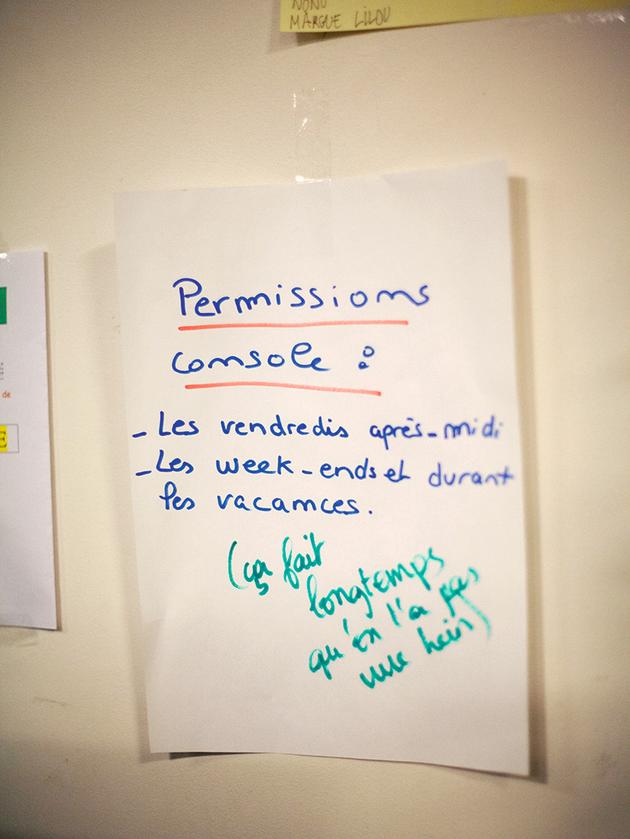 NONO
MARGUE LILOU
de
E
Permissions
console :
- Les vendredis après-midi
- Les week-ends et durant
les vacances.
(ça fait
longtemps
qu'on l'a pas
vue hein)